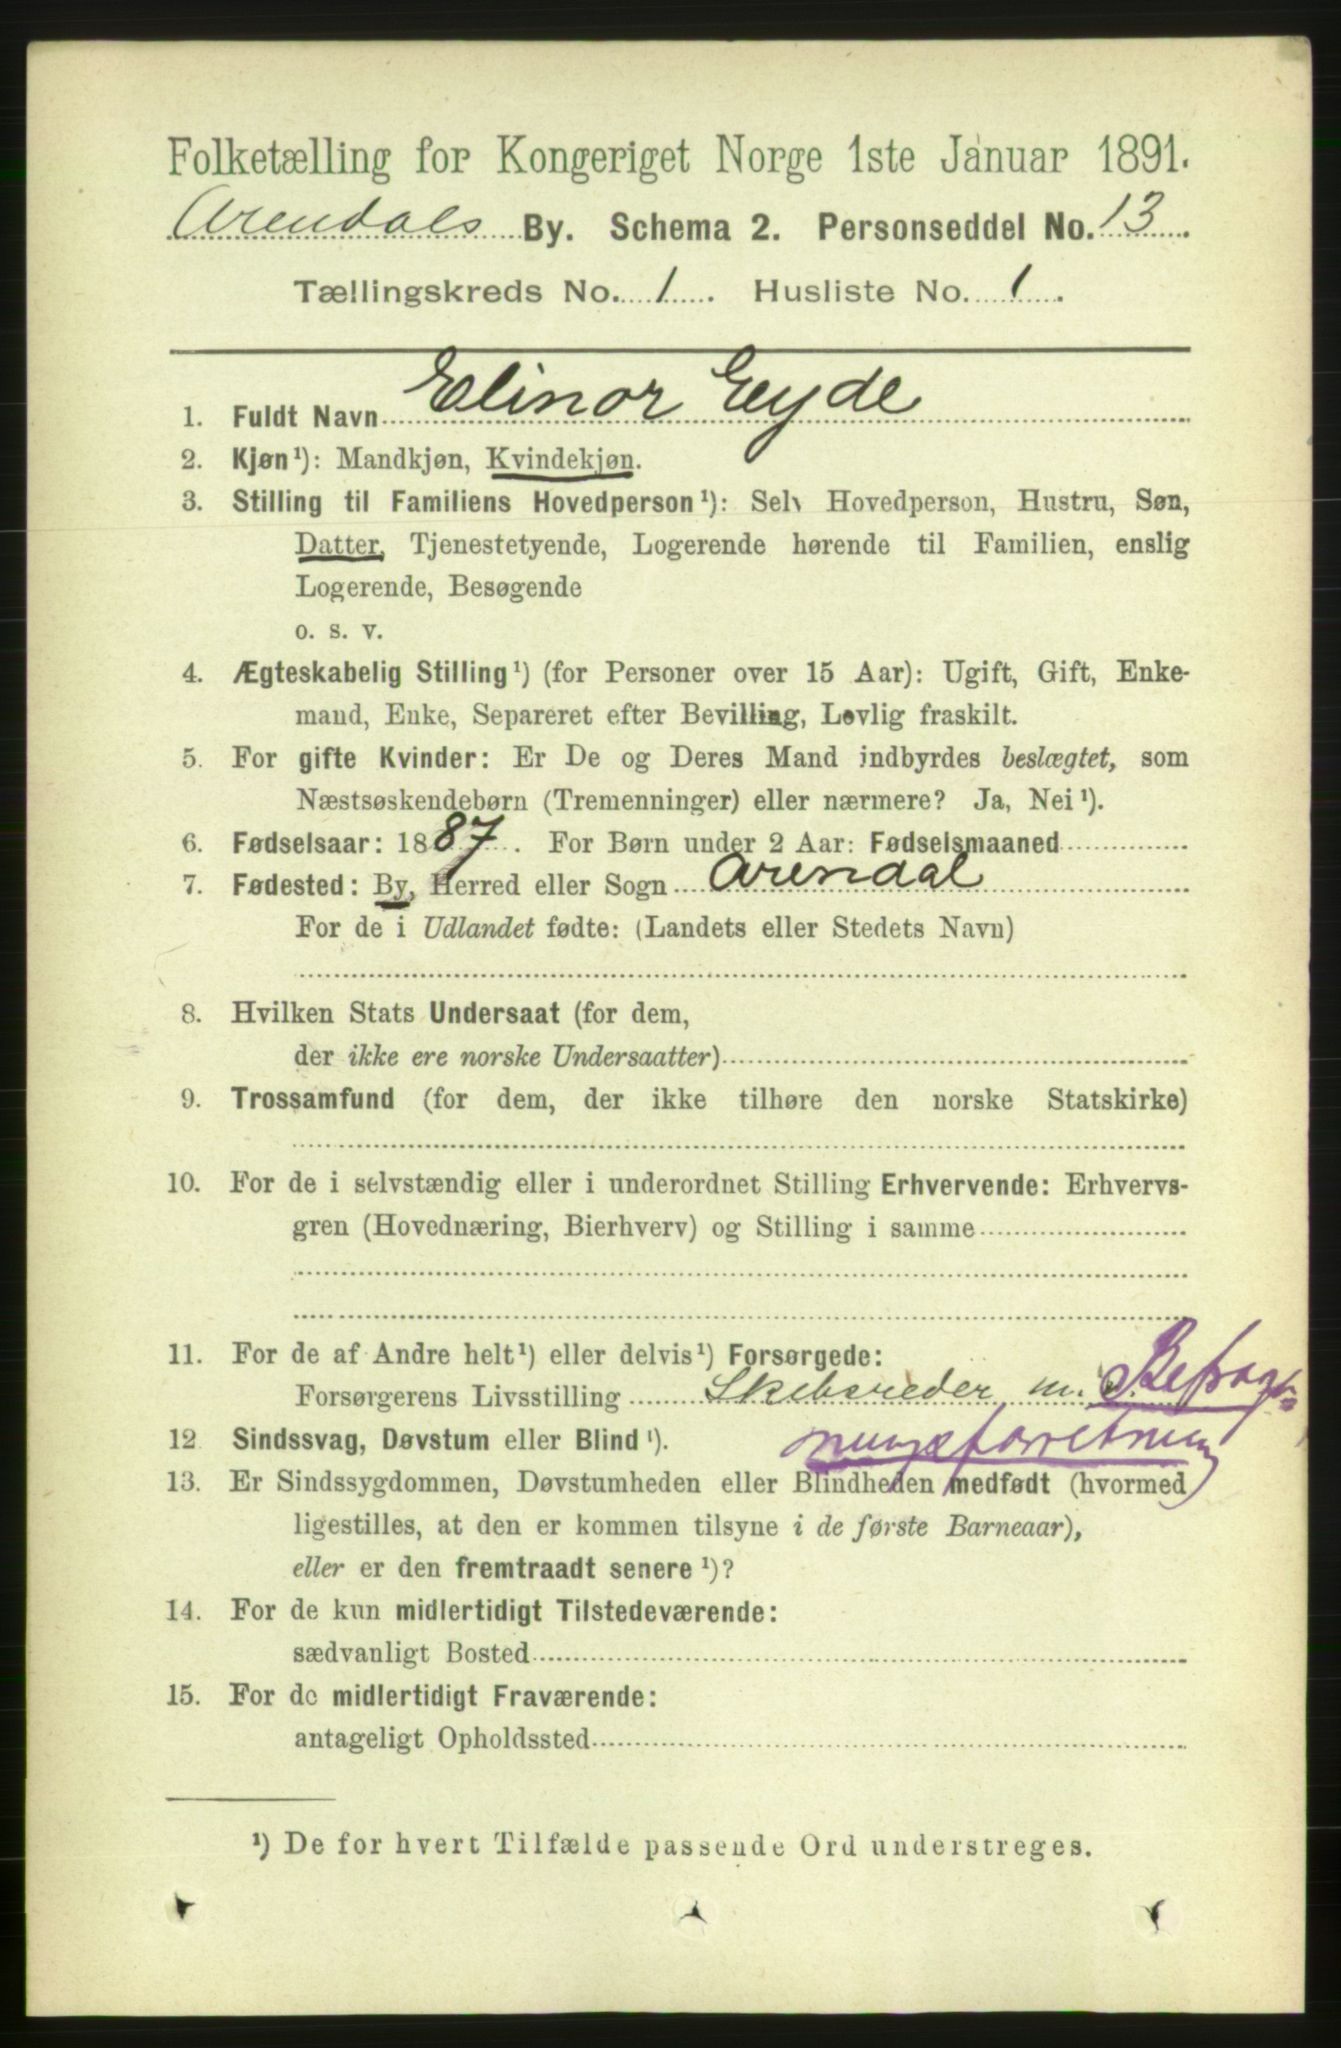 Folketælling for Kongeriget Norge 1ste Januar 1891.
Arendals By. Schema 2. Personseddel No. 13.
Tællingskreds No. 1. Husliste No. 1.
1. Fuldt Navn Elinor Eyde
2. Kjøn¹): Mandkjøn, Kvindekjøn.
3. Stilling til Familiens Hovedperson¹): Selv Hovedperson, Hustru, Søn,
Datter, Tjenestetyende, Logerende hørende til Familien, enslig
Logerende, Besøgende
o. s. v.
4. Ægteskabelig Stilling¹) (for Personer over 15 Aar): Ugift, Gift, Enke-
mand, Enke, Separeret efter Bevilling, Lovlig fraskilt.
5. For gifte Kvinder: Er De og Deres Mand indbyrdes beslægtet, som
Næstsøskendebørn (Tremenninger) eller nærmere? Ja, Nei¹).
6. Fødselsaar: 1887. For Børn under 2 Aar: Fødselsmaaned
7. Fødested: By, Herred eller Sogn Arendal
For de i Udlandet fødte: (Landets eller Stedets Navn)
8. Hvilken Stats Undersaat (for dem,
der ikke ere norske Undersaatter)
9. Trossamfund (for dem, der ikke tilhøre den norske Statskirke)
10. For de i selvstændig eller i underordnet Stilling Erhvervende: Erhvervs-
gren (Hovednæring, Bierhverv) og Stilling i samme
11. For de af Andre helt¹) eller delvis¹) Forsørgede:
Forsørgerens Livsstilling Skibsreder m. Befragt-
12 Sindssvag, Døvstum eller Blind¹). ningsforretning
13. Er Sindssygdommen, Døvstumheden eller Blindheden medfødt (hvormed
ligestilles, at den er kommen tilsyne i de første Barneaar),
eller er den fremtraadt senere¹)?
14. For de kun midlertidigt Tilstedeværende:
sædvanligt Bosted
15. For de midlertidigt Fraværende:
antageligt Opholdssted
¹) De for hvert Tilfælde passende Ord understreges.